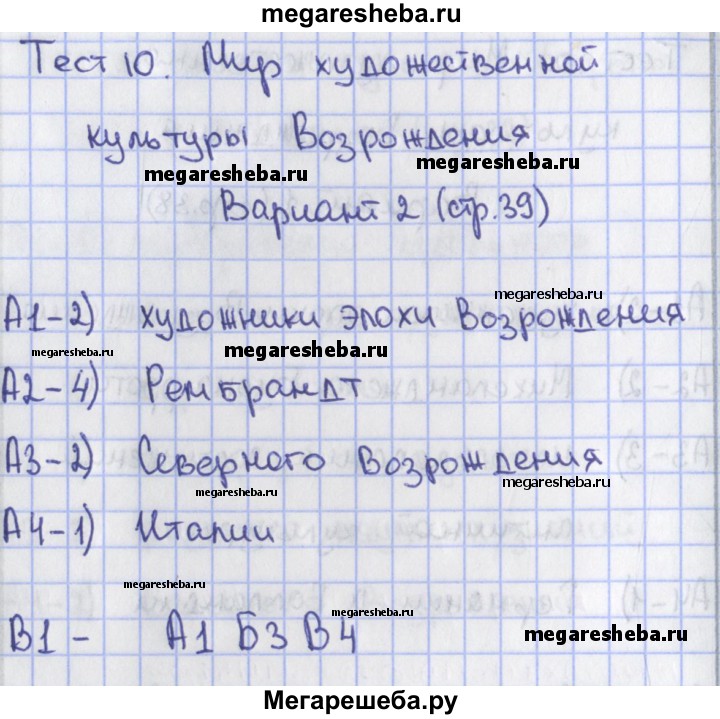 megaresheba.ru
Тест 10. Мир художественной
культуры Возрождения
megaresheba.ru
megaresheba.ru
Вариант 2 (стр.39)
megaresheba.ru
А1-2) художники эпохи Возрождения
megaresheba.ru
megaresheba.ru
А2-4) Рембрандт
А3-2) Северного Возрождения
megaresheba.ru
megaresheba.ru
А4-1) Италии
megaresheba.ru
megaresheba.ru
В1 - А1 Б3 В4
megaresheba.ru
Мегарешеба.ру